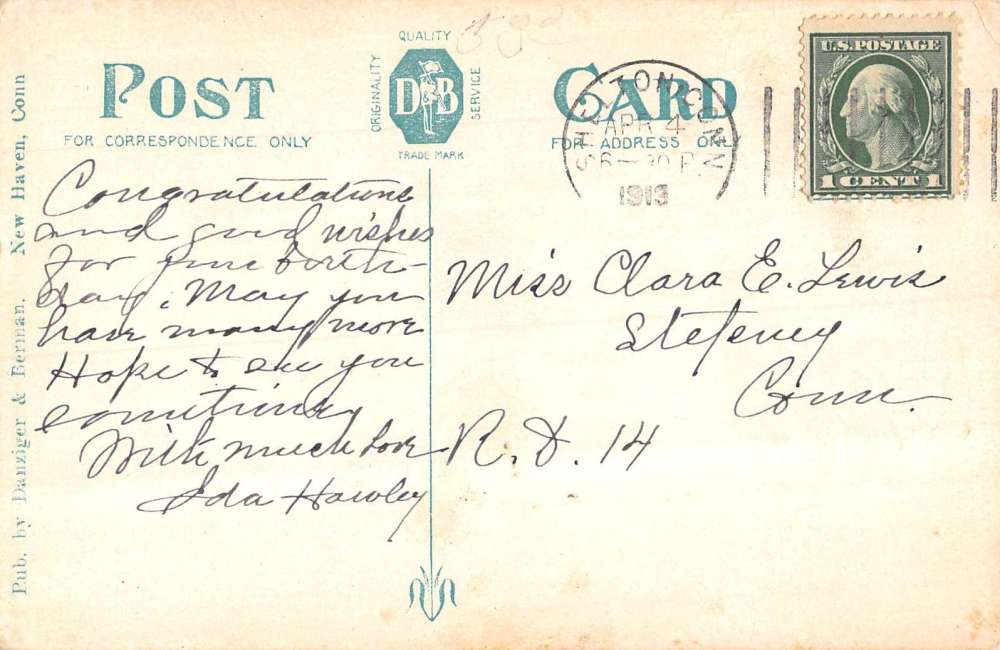 POST CARD
FOR CORRESPONDENCE ONLY
QUALITY
ORIGINALITY
SERVICE
D B
TRADE MARK
FOR ADDRESS ONLY
SHELTON CONN
APR 4
6 — 30 P
1913
U.S. POSTAGE
1 CENT 1
Pub. by Danziger & Berman. New Haven, Conn
Congratulations
and good wishes
for your birth-
day. May you
have many more
Hope to see you
sometime
With much love
Ida Hawley
Miss Clara E. Lewis
Stepney
Conn.
R. D. 14